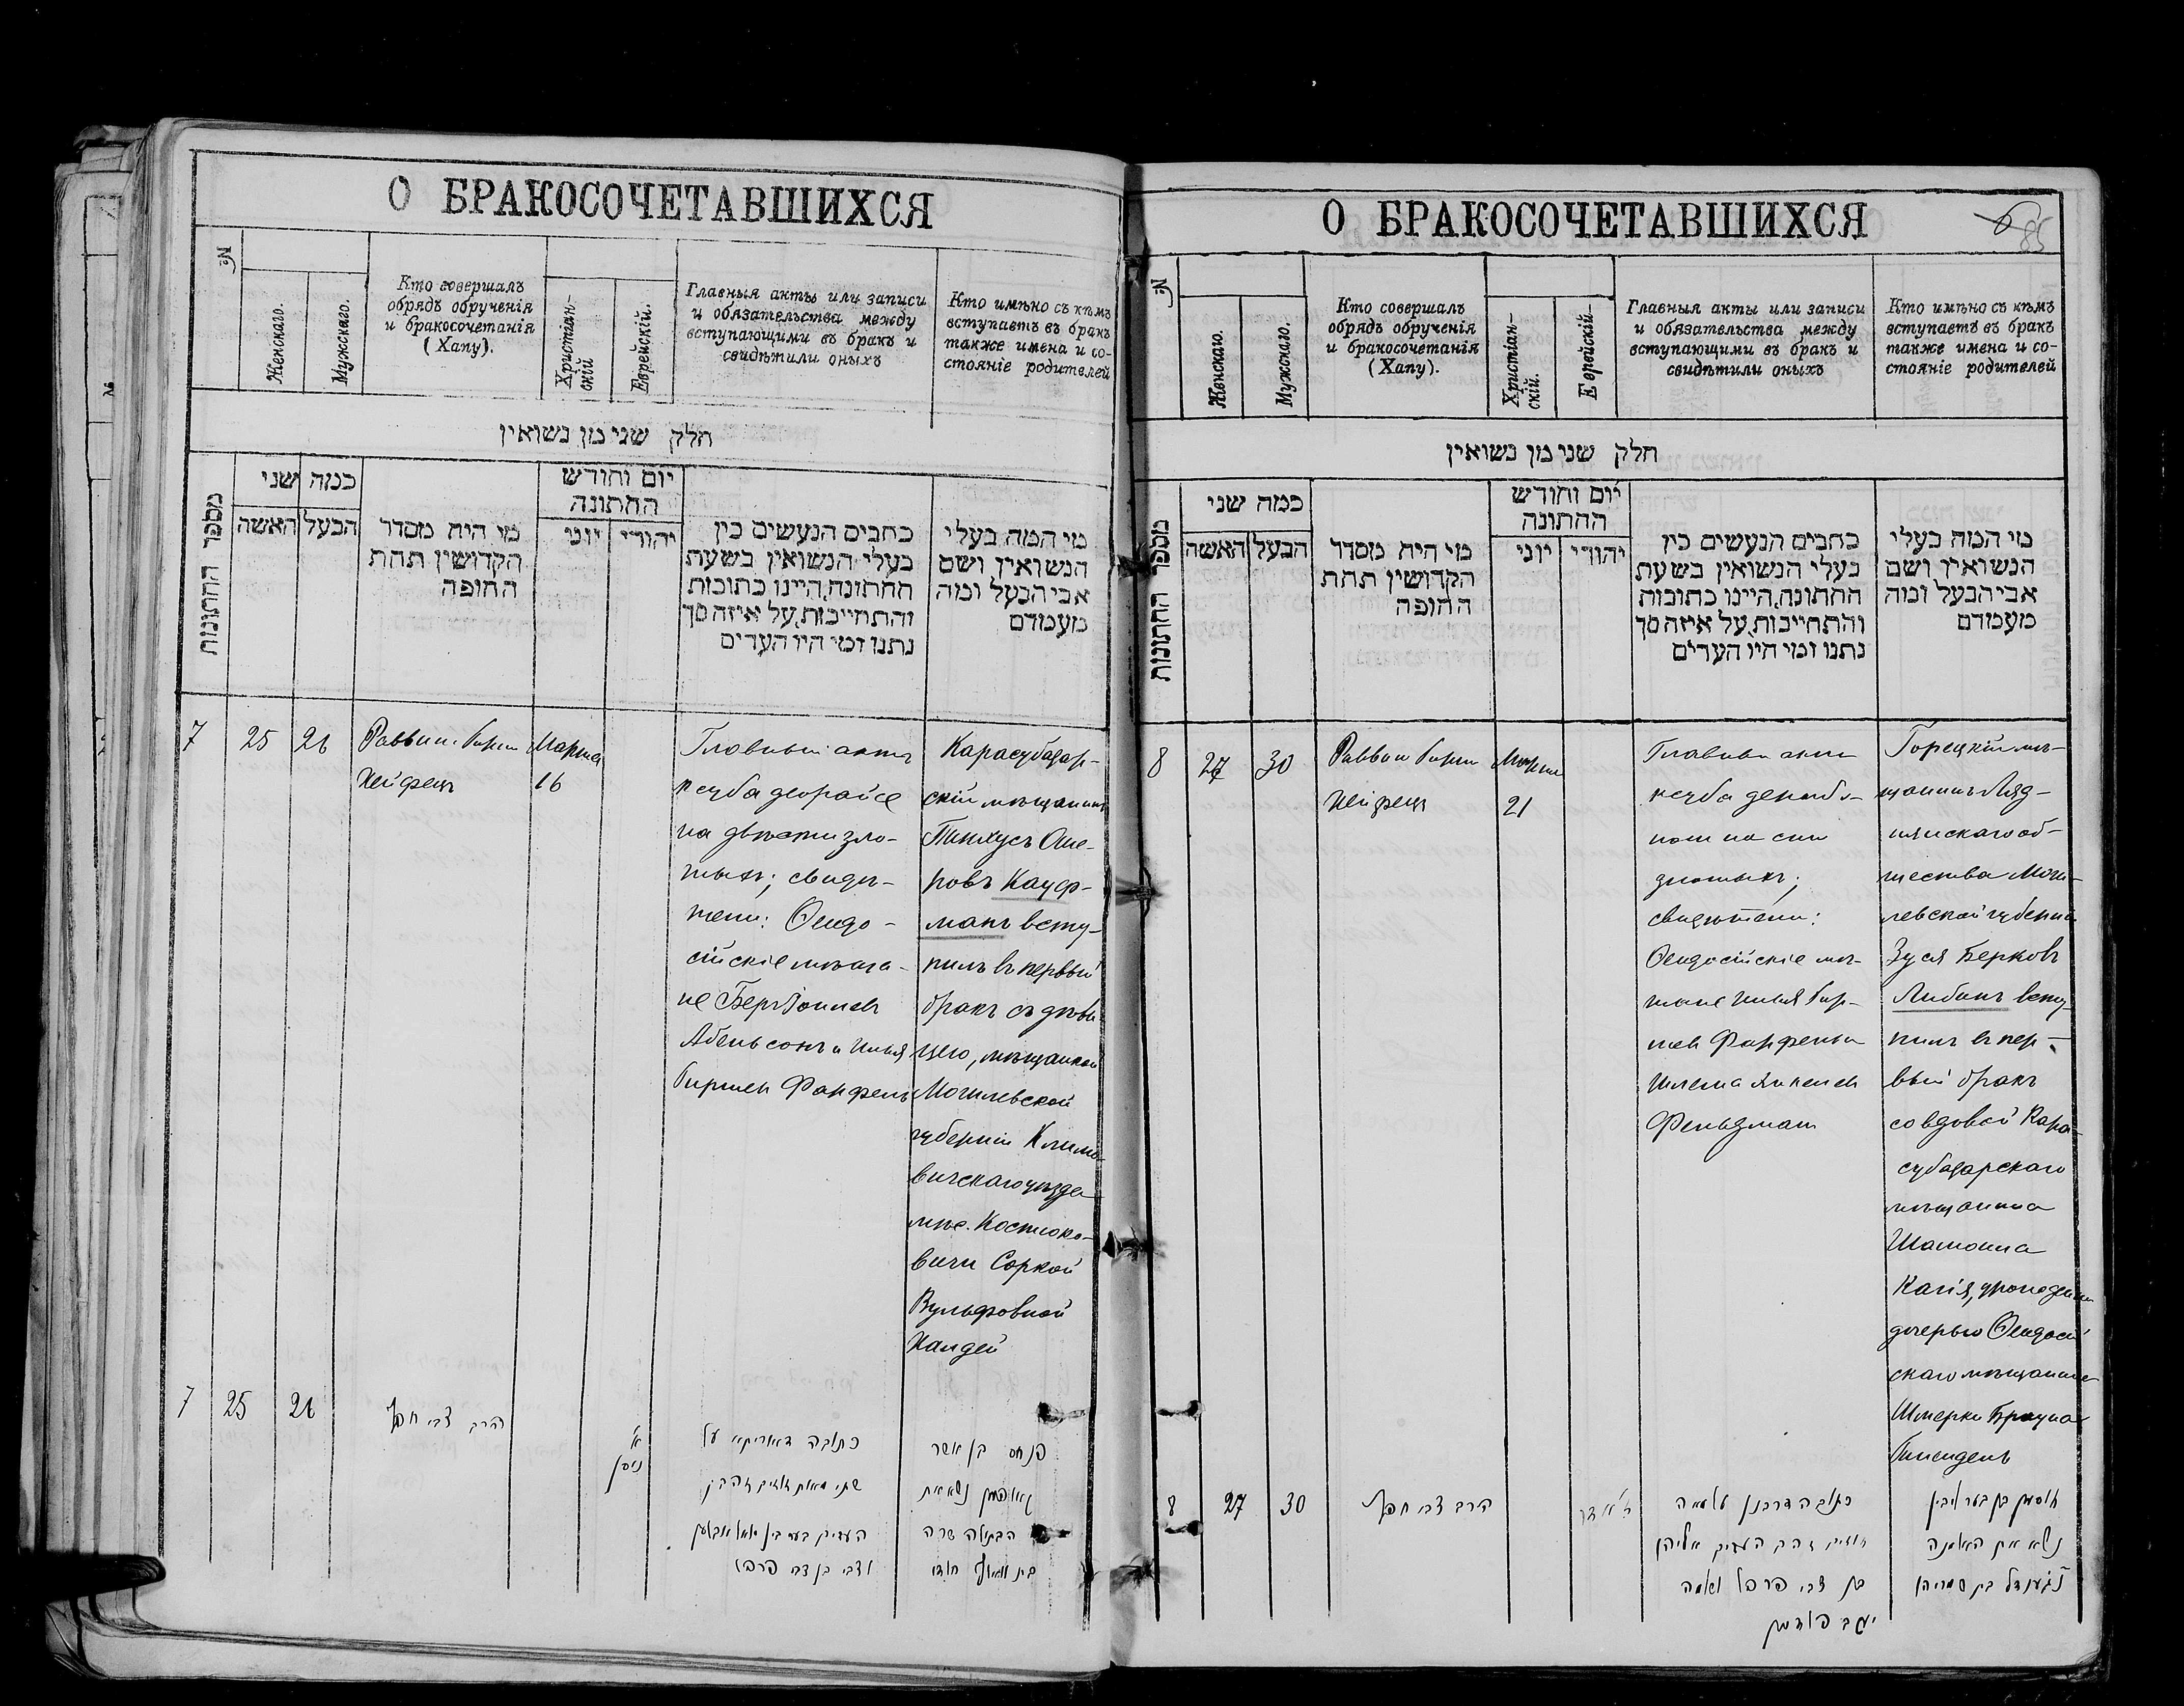 О БРАКОСОЧЕТАВШИХСЯ
№
Женскаго.
Мужскаго.
Кто совершалъ
обрядъ обрученія
и бракосочетанія
(Хапу).
Христіан-
скій
Еврейскій.
Главныя акты или записи
и обязательства между
вступающими въ бракъ и
свидѣтили оныхъ
Кто имѣно съ кѣмъ
вступаетъ въ бракъ
также имена и со-
стояніе родителей
חלק שני מן נשואין
מספר החתונות
כמה שני
האשה
הבעל
מי היה מסדר
הקדושין תחת
החופה
יום וחודש
החתונה
יוני
יהודי
כתבים הנעשים בין
בעלי הנשואין בשעת
החתונה, היינו כתובות
והתחייבות, על איזה סך
נתנו ומי היו העדים
מי המה בעלי
הנשואין ושם
אבי הבעל ומה
מעמדם
7
25
26
Раввинъ Гирш
Хейфецъ
Марта
16
Главный актъ
ксуба деорайсе
на двѣсти зло-
тыхъ; свидѣ-
тели: Ѳеодо-
сійскіе мѣща-
не Беръ
Абельсонъ и Илья
Гиршен Фарфель
Карасубазар-
скій мѣщанинъ
Пинхусъ Оше-
ровъ Кауф-
манъ всту-
пилъ въ первый
бракъ съ дѣви-
цею, мѣщанкой
Могилевской
губерніи Климо-
вичскаго уѣзда
мѣс. Костюко-
вичи Соркой
Вульфовной
Хайдей
7
25
26
הרב צבי חפץ
א'
ניסן
כתובה דאורייתא על
שתי מאות זוזים
העדים
וצבי בן צבי פרפל
פנחס בן אשר
קאופמן נשא את
הבתולה שרה
О БРАКОСОЧЕТАВШИХСЯ
85
№
Женскаго.
Мужскаго.
Кто совершалъ
обрядъ обрученія
и бракосочетанія
(Хапу).
Христіан-
скій.
Еврейскій
Главныя акты или записи
и обязательства между
вступающими въ бракъ и
свидѣтили оныхъ
Кто имѣно съ кѣмъ
вступаетъ въ бракъ
также имена и со-
стояніе родителей
חלק שני מן נשואין
מספר החתונות
כמה שני
האשה
הבעל
מי היה מסדר
הקדושין תחת
החופה
יום וחודש
החתונה
יוני
יהודי
כתבים הנעשים בין
בעלי הנשואין בשעת
החתונה, היינו כתובות
והתחייבות, על איזה סך
נתנו ומי היו העדים
מי המה בעלי
הנשואין ושם
אבי הבעל ומה
מעמדם
8
27
30
Раввин Гирш
Хейфецъ
Марта
21
Главный актъ
ксуба
на сто
злотыхъ;
свидѣтели:
Ѳеодосійскіе мѣ-
щане Илья Гир-
шев Фарфель и
Шлема
Фельдманъ
Горецкій мѣ-
щанинъ Ляд-
нянскаго об-
щества Моги-
левской губерніи
Зуся Берковъ
Либинъ всту-
пилъ въ пер-
вый бракъ
со вдовой Кара-
субазарскаго
мѣщанина
Шамоила
Кагія, урожденн
дочерью Ѳеодосій
скаго мѣщанина
Шмерки
8
27
30
הרב צבי חפץ
כתובה דרבנן על מאה
זוזים זהב העדים אליהו
בן צבי פרפל ושלמה
יעקב פולדמן
נשא את האלמנה